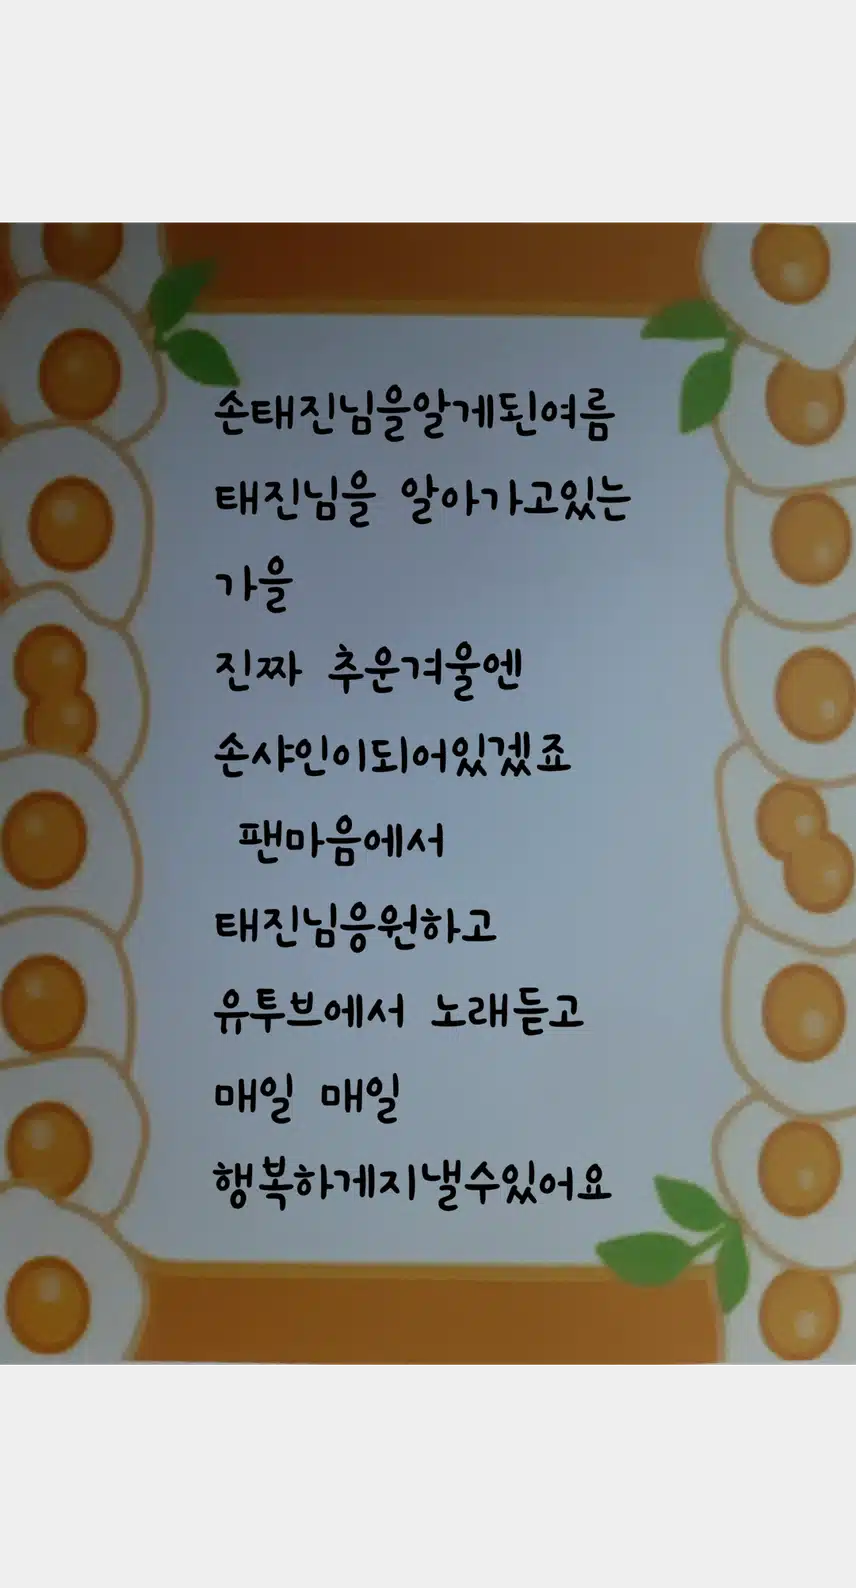 손태진님을알게된여름
태진님을 알아가고있는
가을
진짜 추운겨울엔
손샤인이되어있겠죠
팬마음에서
태진님응원하고
유투브에서 노래듣고
매일 매일
행복하게지낼수있어요